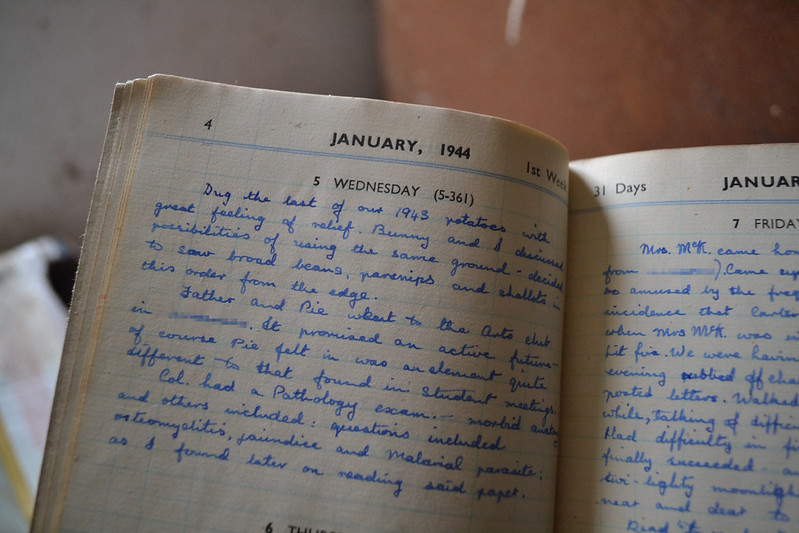 4
JANUARY, 1944
1st Week
5 WEDNESDAY (5-361)
Dug the last of our 1943 potatoes with
great feeling of relief. Bunny and I discussed
possibilities of using the same ground - decided
to sow broad beans, parsnips and shallots in
this order from the edge.
Father and Pie went to the Arts club
in . It promised an active future -
of course Pie felt in was an element quite
different to that found in Student meetings.
Col. had a Pathology exam. - morbid anatomy
and others included: questions included
osteomyelitis, jaundise and Malarial parasite;
as I found later on reading said paper.
6 THURS
31 Days
JANUAR
7 FRIDA
Mrs. McK. came hom
from ). Came
so amused by the freq
incidence that Carter
when Mrs McK. was in
hit five. We were havin
evening rubbed off cha
posted letters. Walked
while, talking of difficu
Had difficulty in fi
finally succeeded - an
twi-lighty moonligh
near and dear to